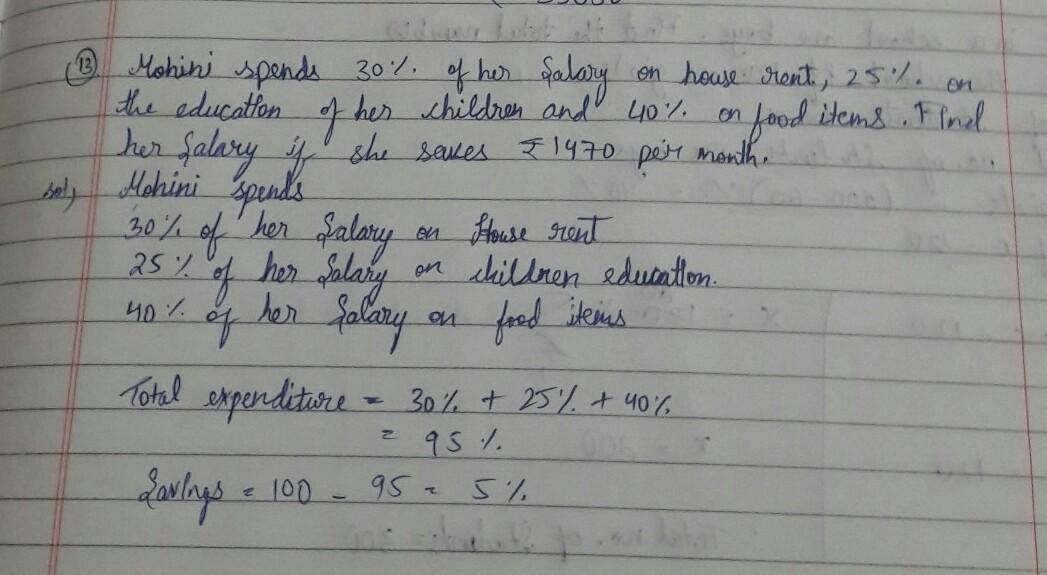 (13) Mohini spends 30%. of her Salary on house rent, 25%. on
the education of her children and 40%. on food items. Find
her Salary if she saves ₹1470 per month.
Sol) Mohini spends
30% of her Salary on House rent
25% of her Salary on children education.
40% of her Salary on food items
Total expenditure = 30% + 25% + 40%
= 95%
Savings = 100 - 95 = 5%